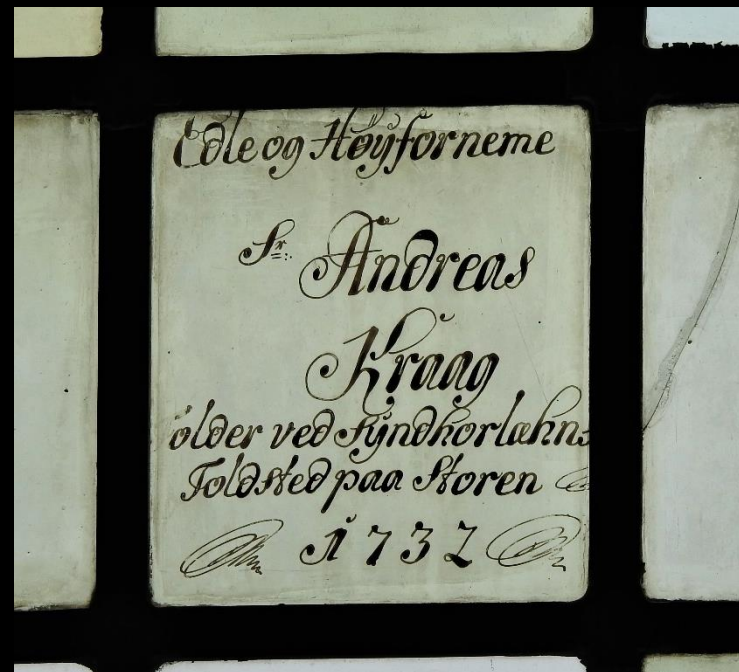 Edle og Høÿforneme
Sr: Andreas
Kraag
older ved Syndhorlæhns
Toldsted paa Storen
1732